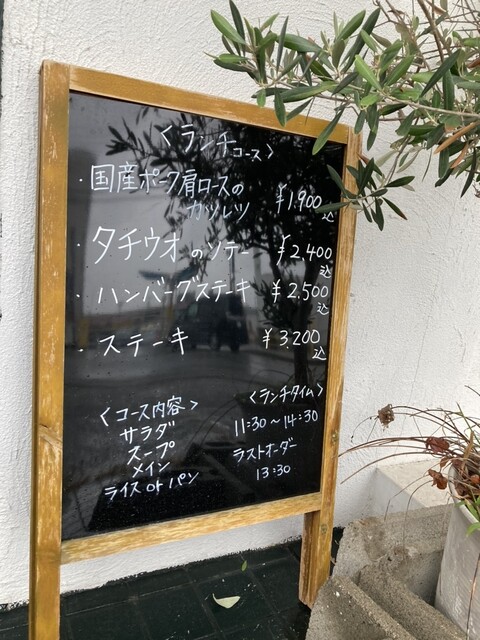 〈ランチコース〉
・国産ポーク肩ロースの
カツレツ ¥1,900込
・タチウオのソテー ¥2,400込
・ハンバーグステーキ ¥2,500込
・ステーキ ¥3,200込
〈コース内容〉
サラダ
スープ
メイン
ライス or パン
〈ランチタイム〉
11:30〜14:30
ラストオーダー
13:30